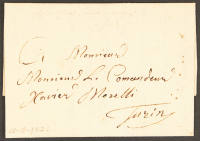 Monsieur
Monsieur Le Comandeur
Xavier Moselli
Turin